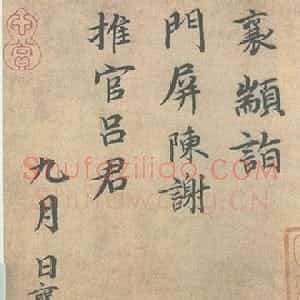 襄顓詣
門屏陳謝
推官呂君
九月 日襄
Shufaziliao.com